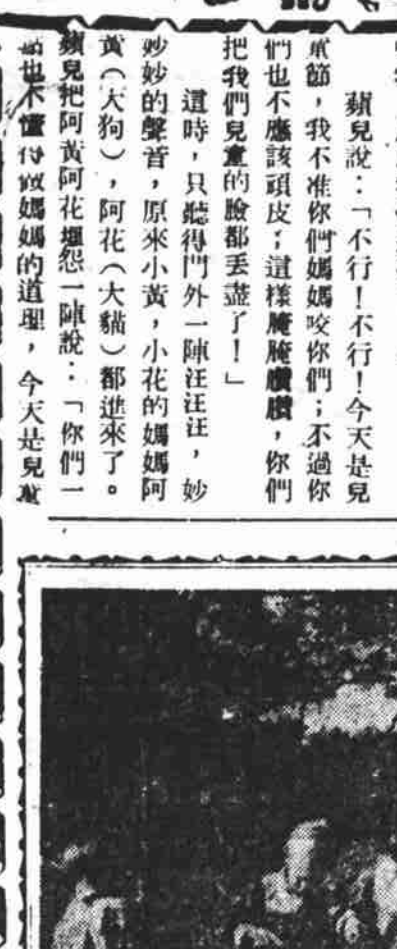 蘋兒說：「不行！不行！今天是兒
童節，我不准你們媽媽咬你們；不過你
們也不應該頑皮；這樣腌腌臢臢，你們
把我們兒童的臉都丟盡了！」
這時，只聽得門外一陣汪汪汪，妙
妙妙的聲音，原來小黃，小花的媽媽阿
黃（大狗），阿花（大貓）都進來了。
蘋兒把阿黃阿花埋怨一陣說：「你們一
點也不懂得做媽媽的道理，今天是兒童